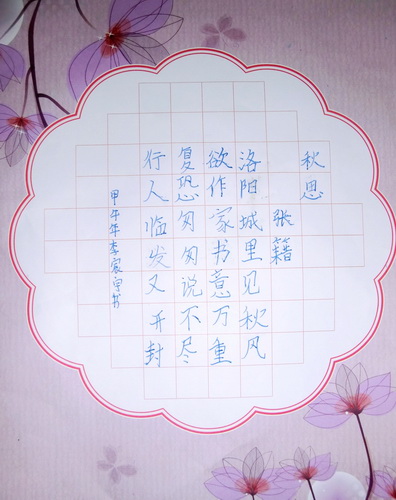 秋思
张籍
洛阳城里见秋风
欲作家书意万重
复恐匆匆说不尽
行人临发又开封
甲午年李家宇书